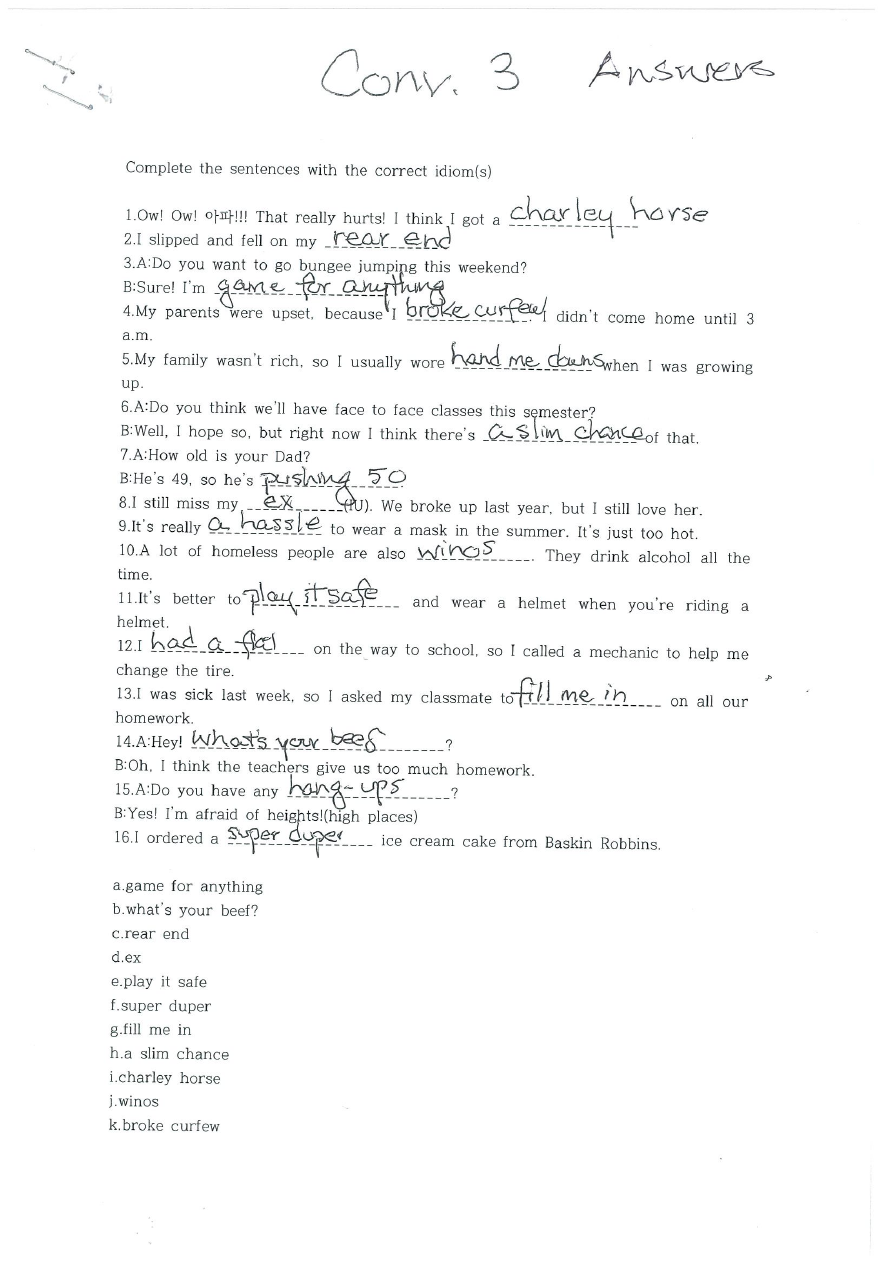 Conv. 3 Answers
Complete the sentences with the correct idiom(s)
1.Ow! Ow! 아파!!! That really hurts! I think I got a charley horse
2.I slipped and fell on my rear end
3.A:Do you want to go bungee jumping this weekend?
B:Sure! I'm game for anything
4.My parents were upset, because I broke curfew. I didn't come home until 3
a.m.
5.My family wasn't rich, so I usually wore hand me downs when I was growing
up.
6.A:Do you think we'll have face to face classes this semester?
B:Well, I hope so, but right now I think there's a slim chance of that.
7.A:How old is your Dad?
B:He's 49, so he's pushing 50
8.I still miss my ex. We broke up last year, but I still love her.
9.It's really a hassle to wear a mask in the summer. It's just too hot.
10.A lot of homeless people are also winos. They drink alcohol all the
time.
11.It's better to play it safe and wear a helmet when you're riding a
helmet.
12.I had a flat on the way to school, so I called a mechanic to help me
change the tire.
13.I was sick last week, so I asked my classmate to fill me in on all our
homework.
14.A:Hey! What's your beef?
B:Oh, I think the teachers give us too much homework.
15.A:Do you have any hang-ups?
B:Yes! I'm afraid of heights!(high places)
16.I ordered a super duper ice cream cake from Baskin Robbins.
a.game for anything
b.what's your beef?
c.rear end
d.ex
e.play it safe
f.super duper
g.fill me in
h.a slim chance
i.charley horse
j.winos
k.broke curfew